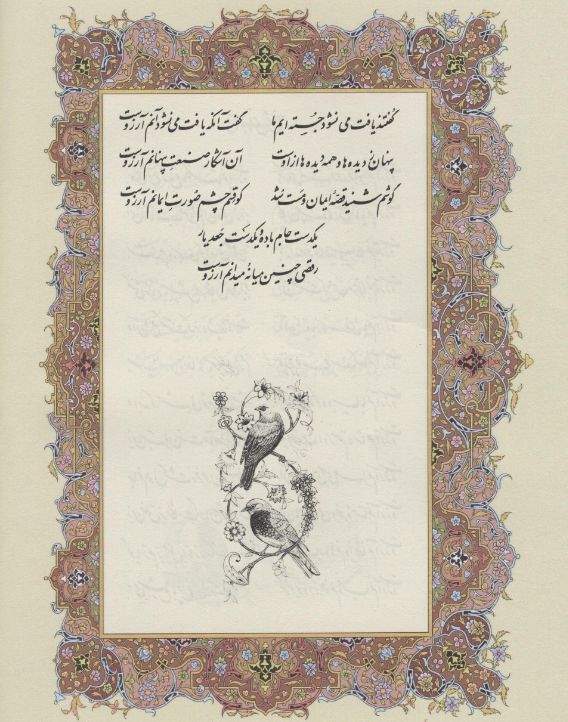 گفتند یافت می نشود جسته ایم ما گفت آنکه یافت می نشود آنم آرزوست
پنهان ز دیده ها و همه دیده ها ازاوست آن آشکار صنعتِ پنهانم آرزوست
گوشم شنید قصهٔ ایمان و مست شد کو قسم چشم صُورتِ ایمانم آرزوست
یکدست جام باده و یکدست جعد یار
رقصی چنین میانهٔ میدانم آرزوست